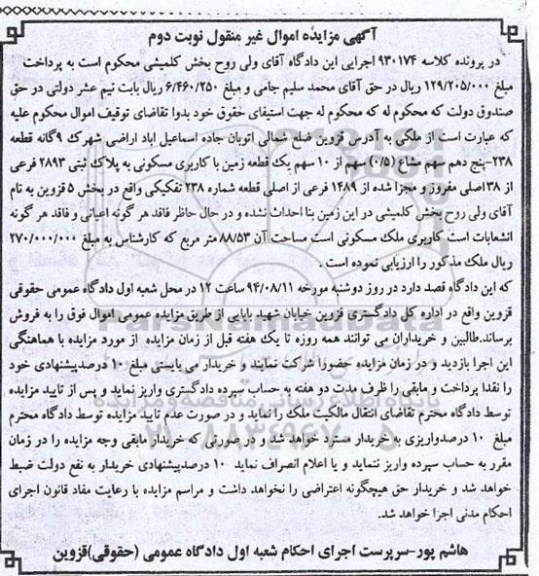 آگهی مزایده اموال غیر منقول نوبت دوم
در پرونده کلاسه ۹۳۰۱۷۴ اجرایی این دادگاه آقای ولی روح بخش کلمیشی محکوم است به پرداخت
مبلغ ۱۲۹/۲۰۵/۰۰۰ ریال در حق آقای محمد سلیم جامی و مبلغ ۶/۴۶۰/۲۵۰ ریال بابت نیم عشر دولتی در حق
صندوق دولت که محکوم له که محکوم له جهت استیفای حقوق خود بدوا تقاضای توقیف اموال محکوم علیه
که عبارت است از ملکی به آدرس قزوین ضلع شمالی اتوبان جاده اسماعیل اباد اراضی شهرک ۹گانه قطعه
۲۳۸-پنج دهم سهم مشاع (۰/۵) سهم از ۱۰ سهم یک قطعه زمین با کاربری مسکونی به پلاک ثبتی ۲۸۹۳ فرعی
از ۳۸اصلی مفروز و مجزا شده از ۱۴۸۹ فرعی از اصلی قطعه شماره ۲۳۸ تفکیکی واقع در بخش ۵قزوین به نام
آقای ولی روح بخش کلمیشی در این زمین بنا احداث نشده و در حال حاظر فاقد هر گونه اعیانی و فاقد هر گونه
انشعابات است کاربری ملک مسکونی است مساحت آن ۸۸/۵۳ متر مربع که کارشناس به مبلغ ۲۷۰/۰۰۰/۰۰۰
ریال ملک مذکور را ارزیابی نموده است .
که این دادگاه قصد دارد در روز دوشنبه مورخه ۹۴/۰۸/۱۱ ساعت ۱۲ در محل شعبه اول دادگاه عمومی حقوقی
قزوین واقع در اداره کل دادگستری قزوین خیابان شهید بابایی از طریق مزایده عمومی اموال فوق را به فروش
برساند.طالبین و خریداران می توانند همه روزه تا یک هفته قبل از زمان مزایده از مورد مزایده با هماهنگی
این اجرا بازدید و در زمان مزایده حضورا شرکت نمایند و خریدار می بایستی مبلغ ۱۰ درصدپیشنهادی خود
را نقدا پرداخت و مابقی را ظرف مدت دو هفته به حساب سپرده دادگستری واریز نماید و پس از تایید مزایده
توسط دادگاه محترم تقاضای انتقال مالکیت ملک را نماید و در صورت عدم تایید مزایده توسط دادگاه محترم
مبلغ ۱۰ درصدواریزی به خریدار مسترد خواهد شد و در صورتی که خریدار مابقی وجه مزایده را در زمان
مقرر به حساب سپرده واریز ننماید و یا اعلام انصراف نماید ۱۰ درصدپیشنهادی خریدار به نفع دولت ضبط
خواهد شد و خریدار حق هیچگونه اعتراضی را نخواهد داشت و مراسم مزایده با رعایت مفاد قانون اجرای
احکام مدنی اجرا خواهد شد.
هاشم پور-سرپرست اجرای احکام شعبه اول دادگاه عمومی (حقوقی)قزوین
ParsNamadData
پایگاه اطلاع رسانی مناقصه و مزایده